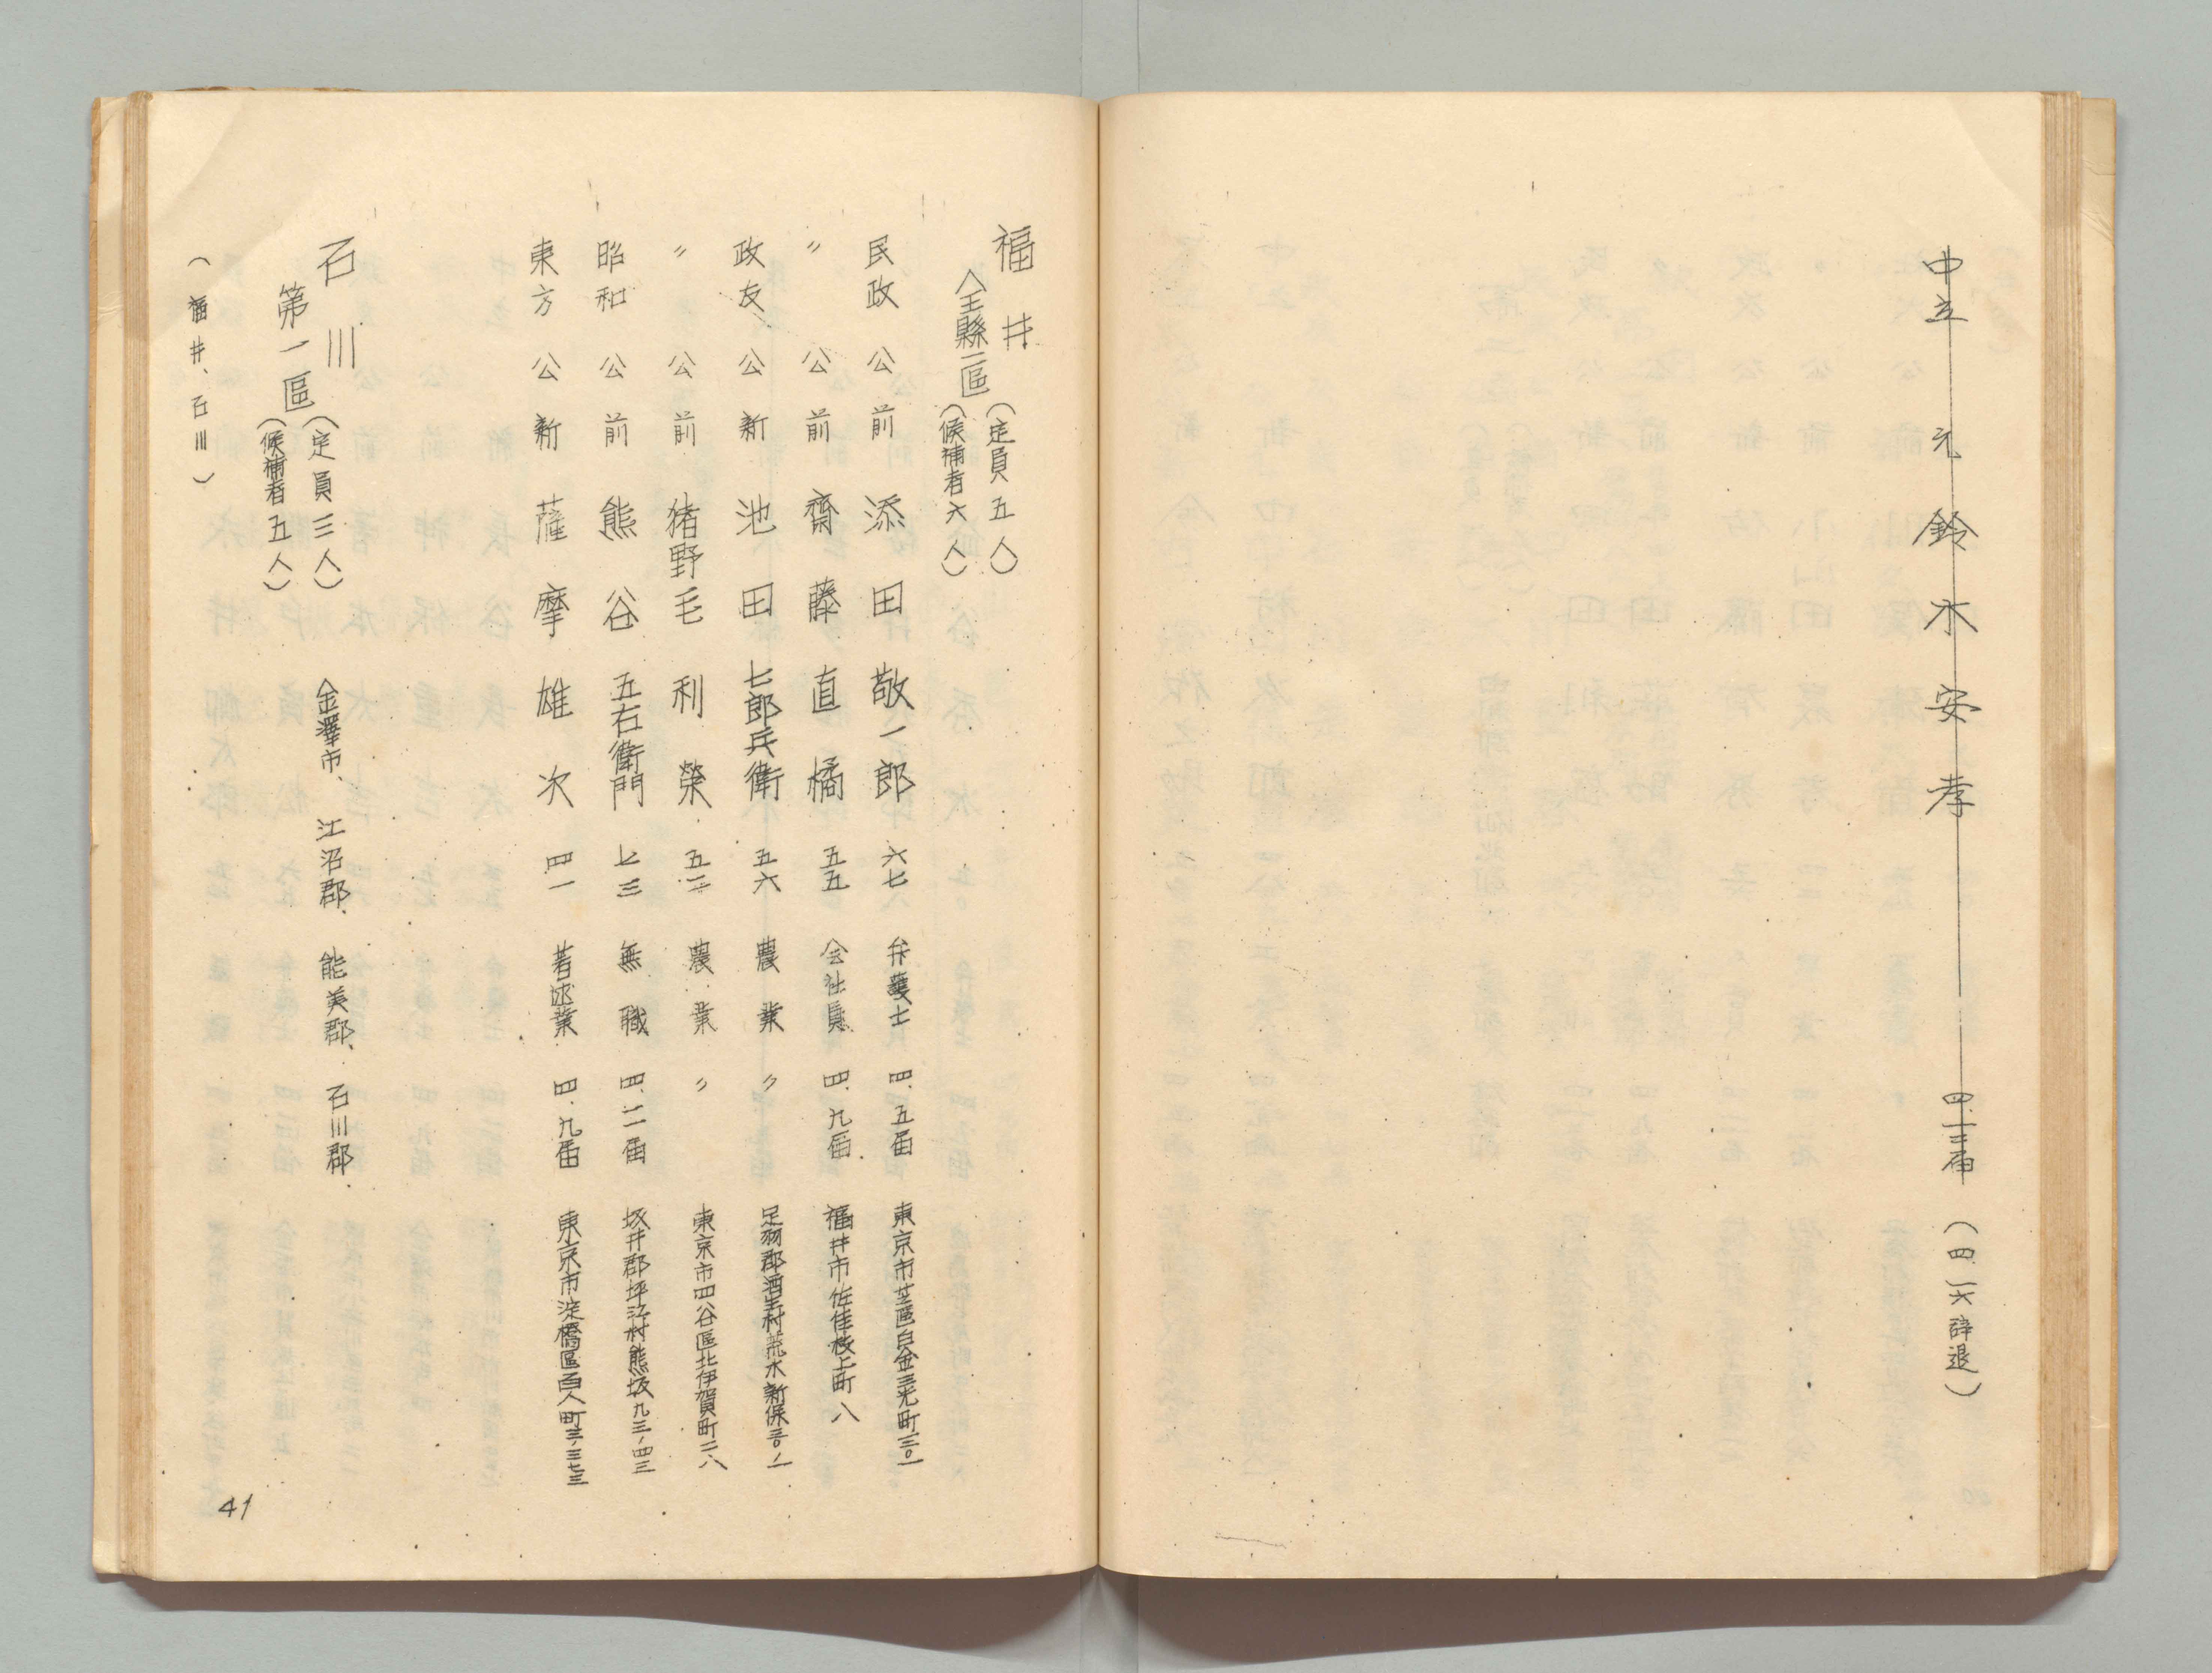 中立 元 鈴木安孝 四、一三届 (四、一六辞退)
福井
全縣一區
(定員五人)
(候補者六人)
民政 公 前 添田敬一郎 六七 弁護士 四、五届 東京市芝區白金三光町三〇一
〃 公 前 齋藤直橘 五五 会社員 四、九届 福井市佐佳枝上町八
政友 公 新 池田七郎兵衛 五六 農業 〃 足羽郡酒生村荒木新保三〇ノ一
〃 公 前 猪野毛利榮 五二 農業 〃 東京市四谷區北伊賀町二八
昭和 公 前 熊谷五右衛門 七三 無職 四、二届 坂井郡坪江村熊坂九三ノ四三
東方 公 新 薩摩雄次 四一 著述業 四、九届 東京市淀橋區百人町三ノ三七三
石川
第一區
(定員三人)
(候補者五人)
金澤市、江沼郡、能美郡、石川郡、
(福井、石川)
41